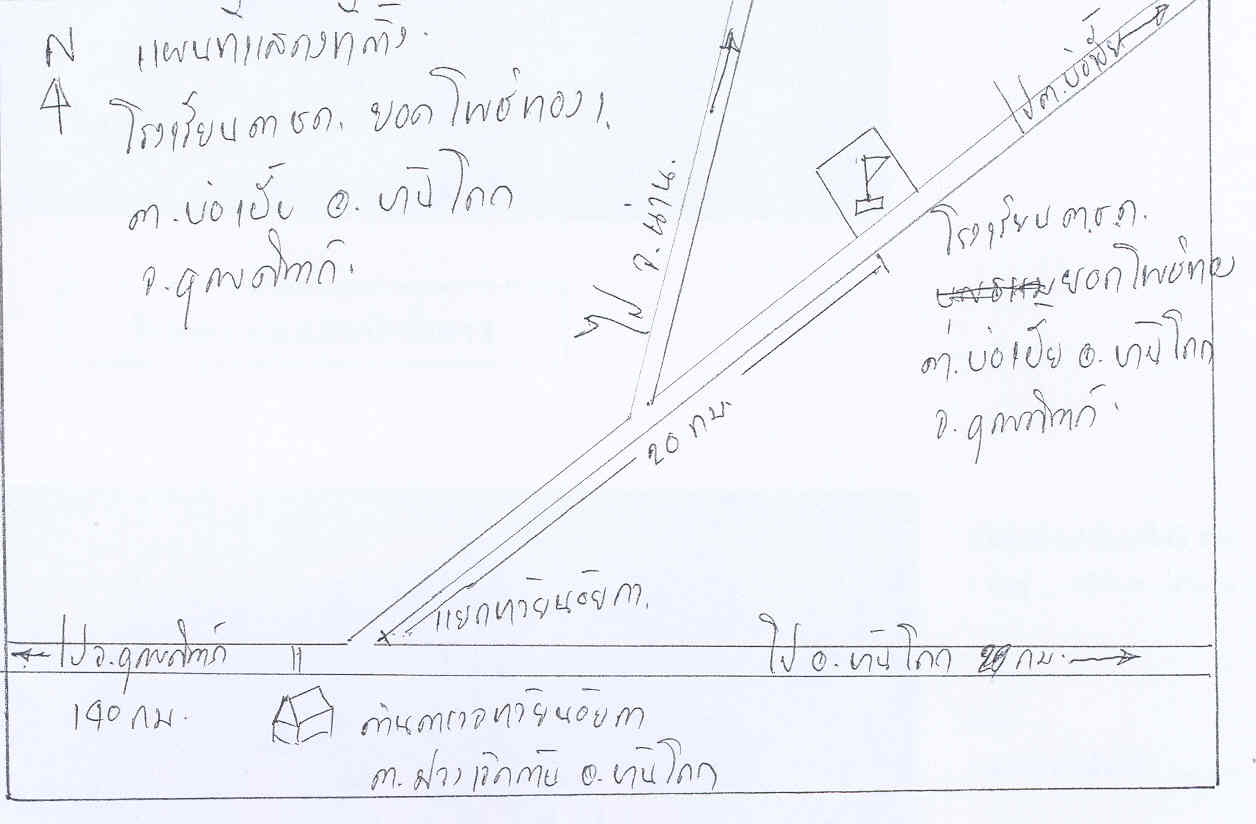 N แผนที่แสดงที่ตั้ง
โรงเรียน ตชด. ยอดโพธิ์ทอง 1
ต.บ่อเบี้ย อ.บ้านโคก
จ.อุตรดิตถ์
ไป ต.บ่อเบี้ย
ไป จ.น่าน
โรงเรียน ต.ช.ด.
ยอดโพธิ์ทอง
ต.บ่อเบี้ย อ.บ้านโคก
จ.อุตรดิตถ์
20 กม.
แยกห้วยน้อยกา
ไป จ.อุตรดิตถ์
ไป อ.บ้านโคก กม.
140 กม.
ด่านตำรวจห้วยน้อยกา
ต.ม่วงเจ็ดต้น อ.บ้านโคก